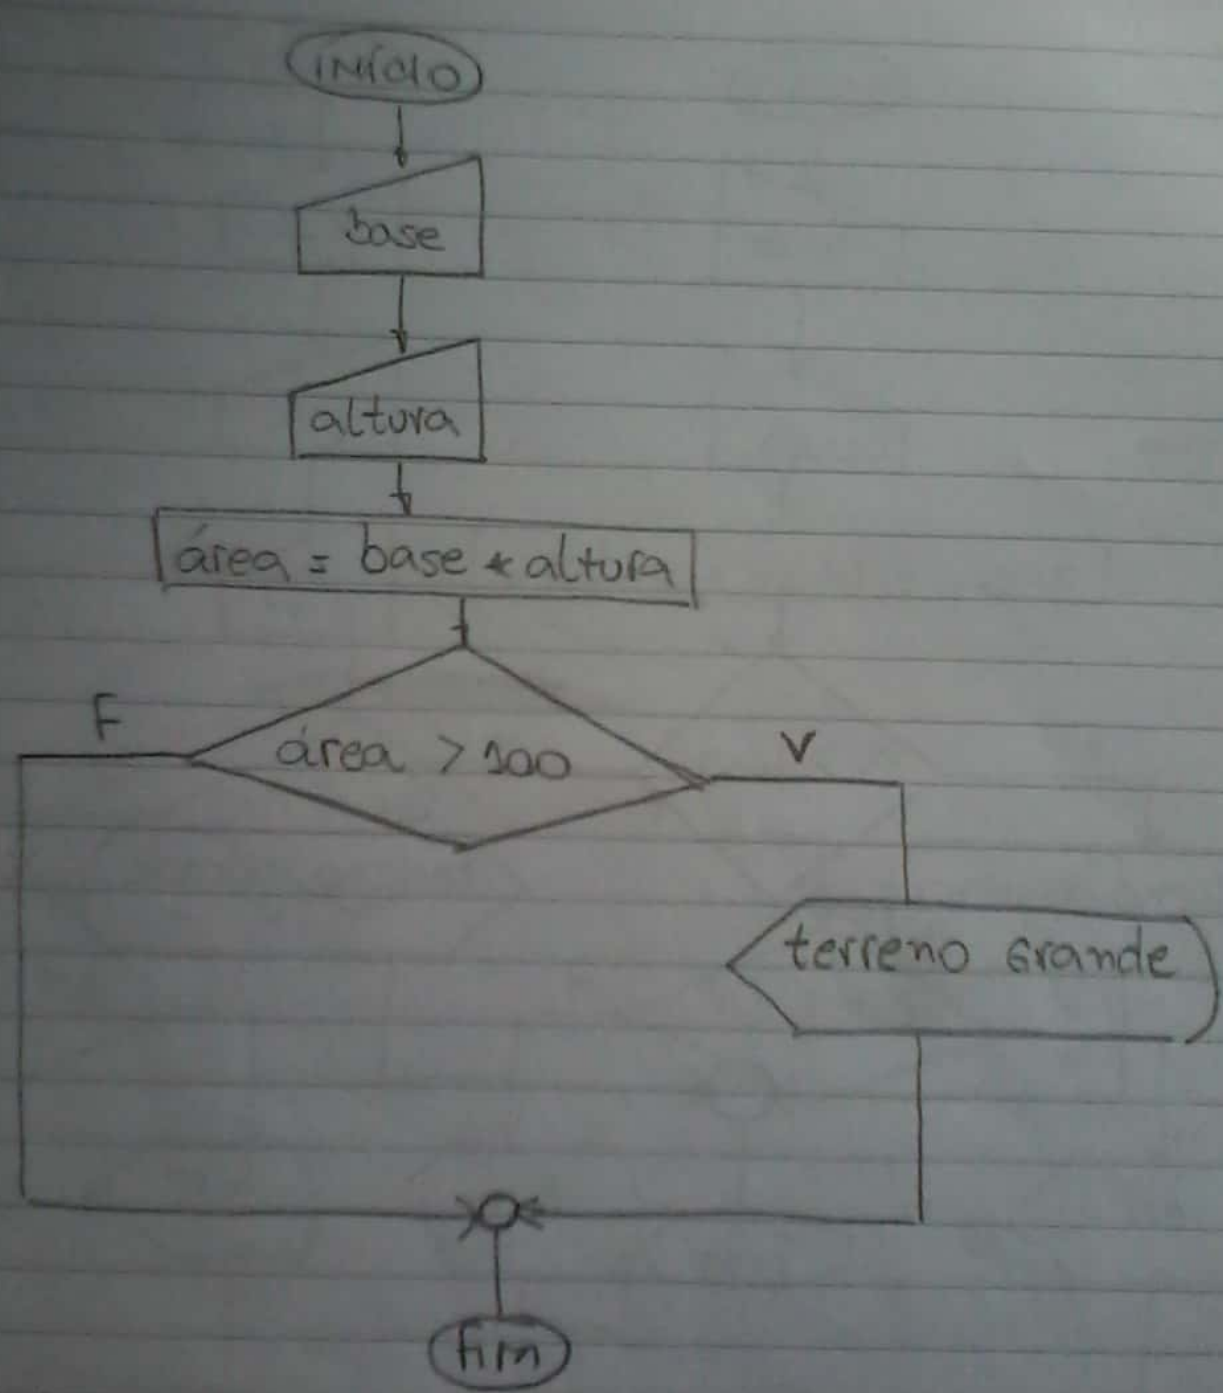 INÍCIO
base
altura
área = base * altura
F
área > 100
V
terreno Grande
fim